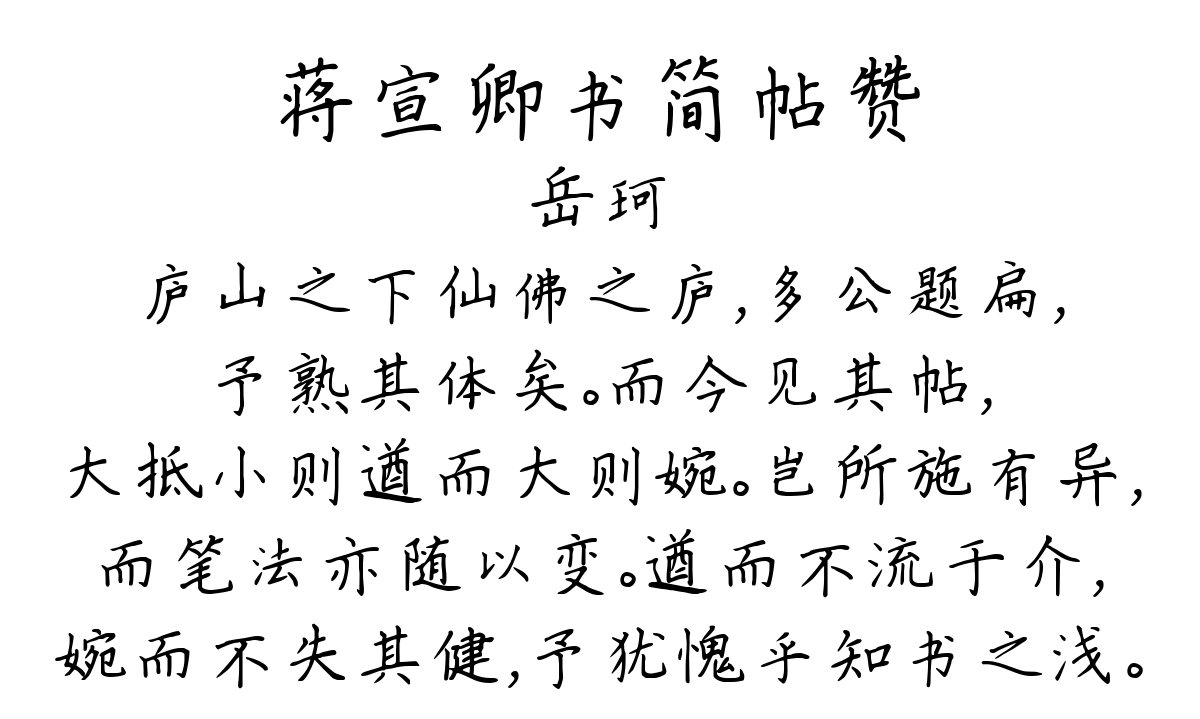 蒋宣卿书简帖赞
岳珂
庐山之下仙佛之庐,多公题扁,
予熟其体矣。而今见其帖,
大抵小则遒而大则婉。岂所施有异,
而笔法亦随以变。遒而不流于介,
婉而不失其健,予犹愧乎知书之浅。